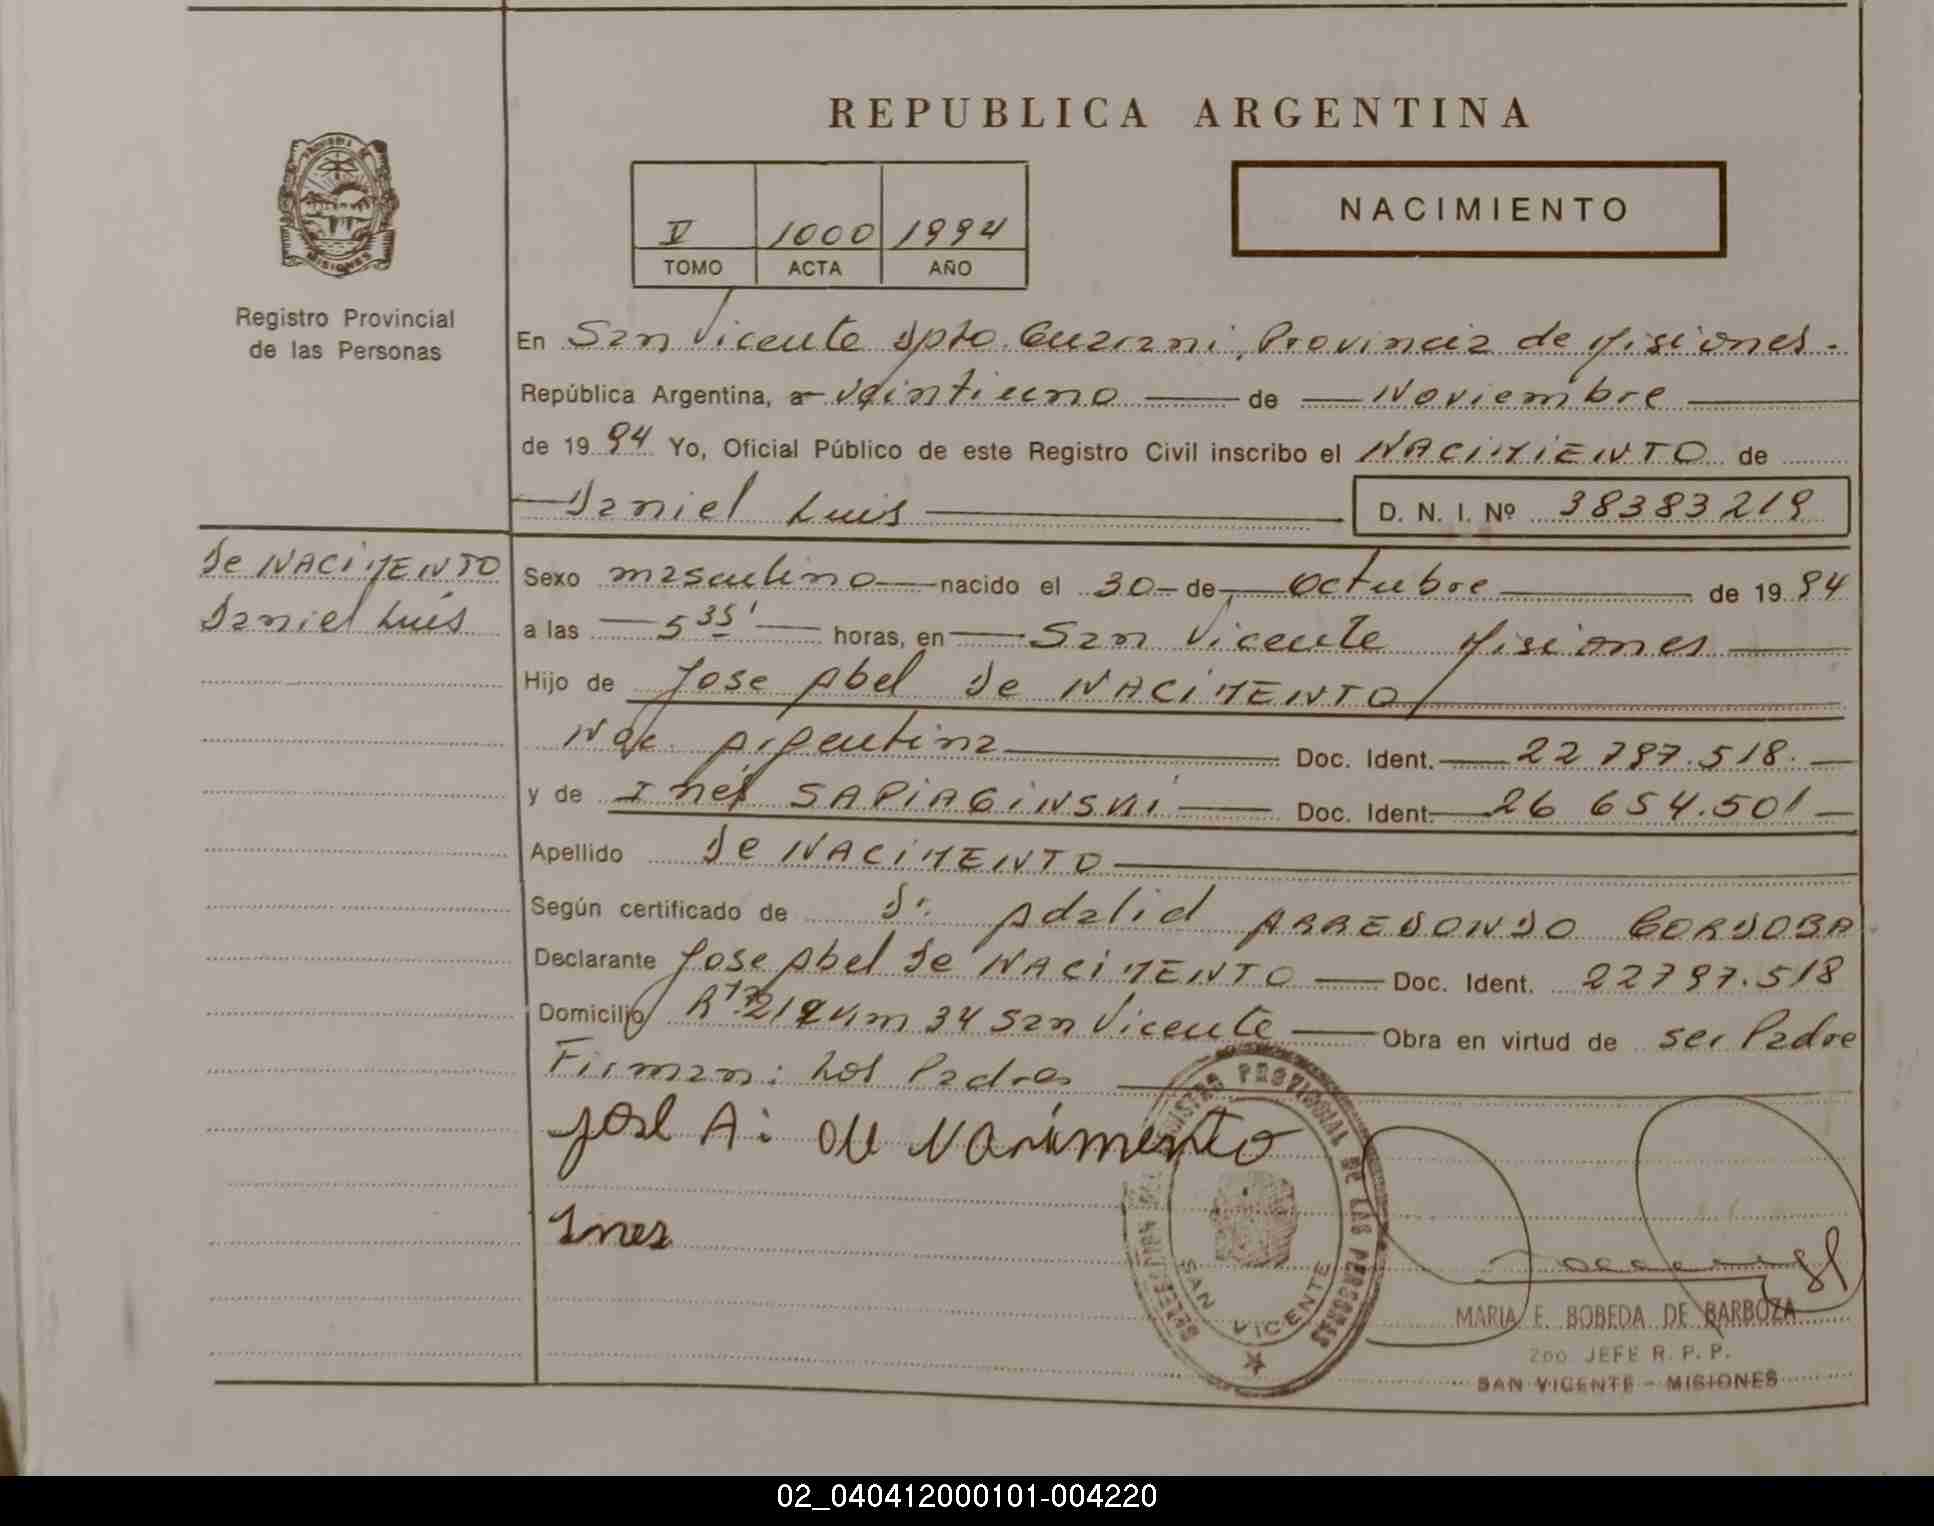 REPUBLICA ARGENTINA
PROVINCIA DE
MISIONES
Registro Provincial
de las Personas
V 1000 1994
TOMO ACTA AÑO
NACIMIENTO
En San Vicente Dpto. Guarani, Provincia de Misiones.
República Argentina, a veintiuno de Noviembre
de 1994 Yo, Oficial Público de este Registro Civil inscribo el NACIMIENTO de
Daniel Luis D. N. I. Nº 38383219
De NACIMENTO
Daniel Luis
Sexo masculino nacido el 30 de Octubre de 1994
a las 5 35' horas, en San Vicente Misiones
Hijo de Jose Abel De NACIMENTO
Nac. Argentina Doc. Ident. 22 797.518.
y de Inés SAPIAGINSKI Doc. Ident. 26 654.501
Apellido De NACIMENTO
Según certificado de Dr. Adalid ARREDONDO CORDOBA
Declarante Jose Abel De NACIMENTO Doc. Ident. 22797.518
Domicilio Km 34 San Vicente Obra en virtud de ser Padre
Firman: Los Padres
José A: de Nacimento
Ines
DELEGACION DEL REGISTRO PROVINCIAL DE LAS PERSONAS
SAN VICENTE
MARIA E. BOBEDA DE BARBOZA
2DO. JEFE R. P. P.
SAN VICENTE - MISIONES
02_040412000101-004220